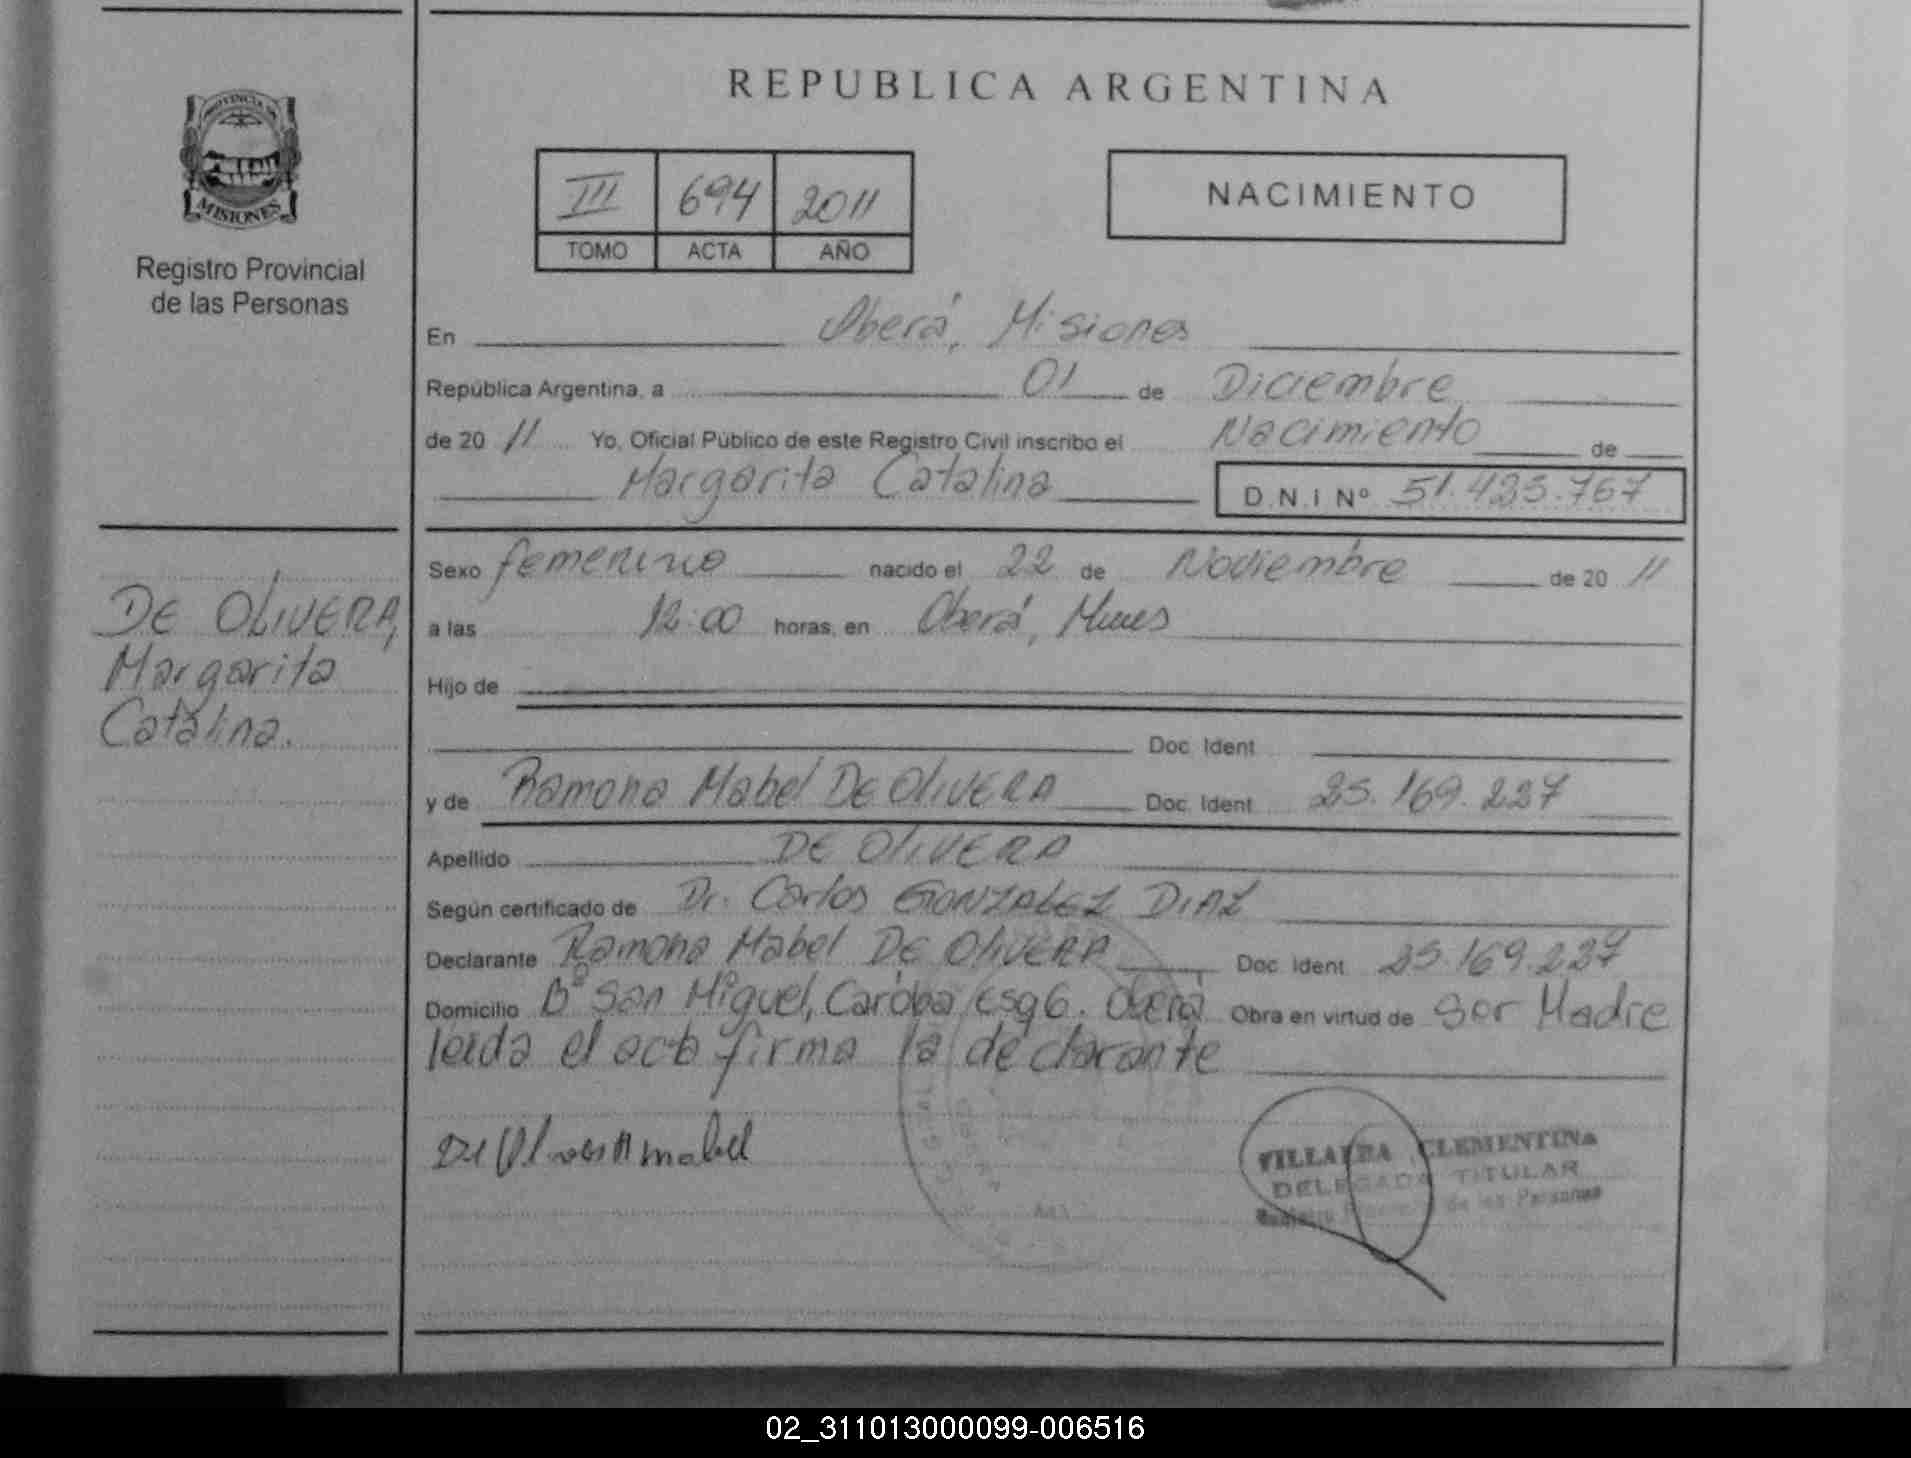 REPUBLICA ARGENTINA
PROVINCIA DE
MISIONES
Registro Provincial
de las Personas
III 694 2011
TOMO ACTA AÑO
NACIMIENTO
En Oberá, Misiones
República Argentina, a 01 de Diciembre
de 20 11 Yo, Oficial Público de este Registro Civil inscribo el Nacimiento de
Margarita Catalina D.N.I Nº 51.423.767
Sexo femenino nacido el 22 de Noviembre de 20 11
a las 12:00 horas, en Oberá, Mnes
Hijo de
Doc. Ident
y de Ramona Mabel DE OLIVERA Doc. Ident 25.169.227
Apellido DE OLIVERA
Según certificado de Dr. Carlos GONZALEZ DIAZ
Declarante Ramona Mabel DE OLIVERA Doc. Ident 25.169.227
Domicilio Bº San Miguel, Cardoba esq 6. Oberá Obra en virtud de ser Madre
leida el acta firma la declarante
DE OLIVERA,
Margarita
Catalina.
De OliverA mabel
VILLALBA CLEMENTINA
DELEGADA TITULAR
Registro Provincial de las Personas
02_311013000099-006516